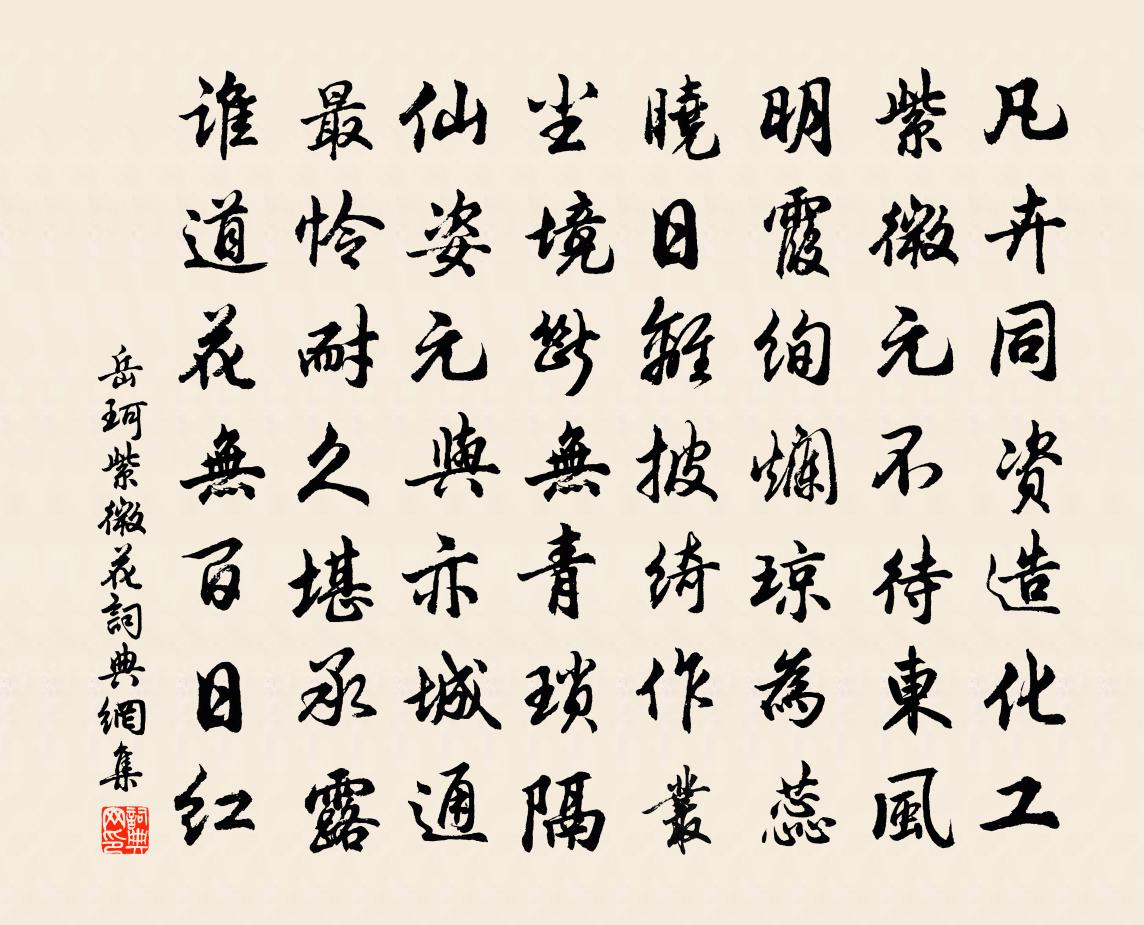 凡卉同资造化工
紫微元不待東風
明霞绚爛琼為蕊
曉日離披绮作叢
尘境斷無青琐隔
仙姿元與亦城通
最怜耐久堪承露
谁道花無百日红
岳珂紫微花詞典網集
詞典网印